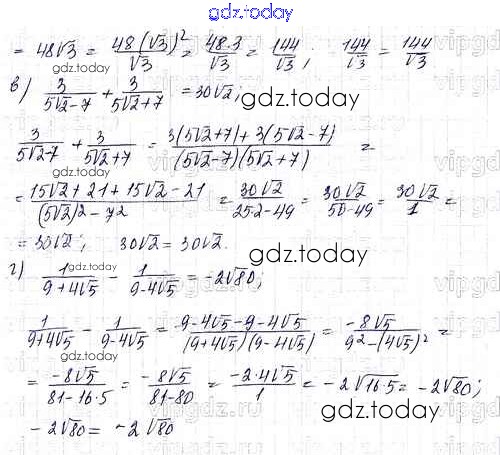 gdz.today
= 48√3 = 48(√3)²/√3 = 48·3/√3 = 144/√3; 144/√3 = 144/√3
gdz.today
в) 3/(5√2-7) + 3/(5√2+7) = 30√2;
gdz.today
3/(5√2-7) + 3/(5√2+7) = (3(5√2+7)+3(5√2-7))/((5√2-7)(5√2+7)) =
gdz.today
= (15√2+21+15√2-21)/((5√2)²-7²) = 30√2/(25·2-49) = 30√2/(50-49) = 30√2/1 =
= 30√2; 30√2 = 30√2.
gdz.today
г) 1/(9+4√5) - 1/(9-4√5) = -2√80;
gdz.today
1/(9+4√5) - 1/(9-4√5) = (9-4√5-9-4√5)/((9+4√5)(9-4√5)) = -8√5/(9²-(4√5)²) =
gdz.today
= -8√5/(81-16·5) = -8√5/(81-80) = -2·4√5/1 = -2√16·5 = -2√80;
gdz.today
-2√80 = -2√80